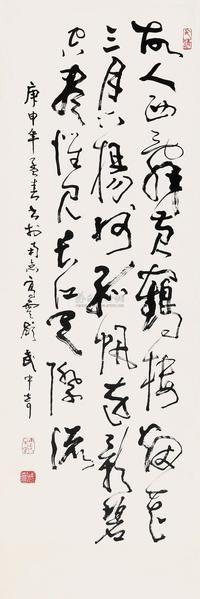 故人西辞黄鹤楼烟花
三月下扬州孤帆远影碧
空尽惟见长江天际流
庚申年孟春书于南京 武中奇